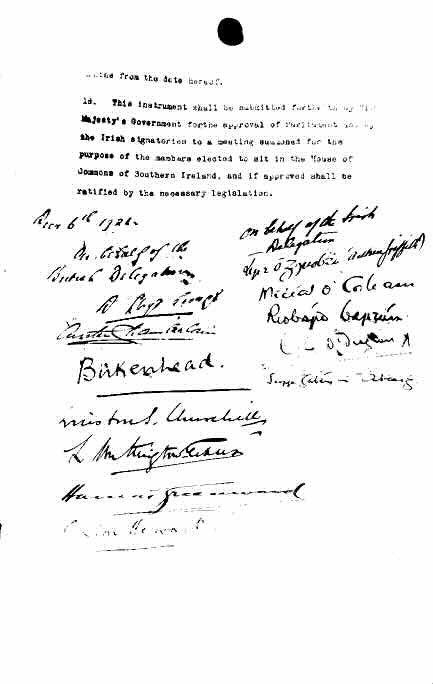 from the date hereof.
18. This instrument shall be submitted forthwith by His
Majesty's Government for the approval of Parliament and by
the Irish signatories to a meeting summoned for the
purpose of the members elected to sit in the House of
Commons of Southern Ireland, and if approved shall be
ratified by the necessary legislation.
Decr 6th 1921.
On behalf of the
British Delegation
D Lloyd George
Austen Chamberlain
Birkenhead.
Winston S. Churchill
L Worthington-Evans
Hamar Greenwood
Gordon Hewart
On behalf of the Irish
Delegation
Art Ó Gríobhtha (Arthur Griffith)
Mícéal Ó Coileain
Riobárd Bartún